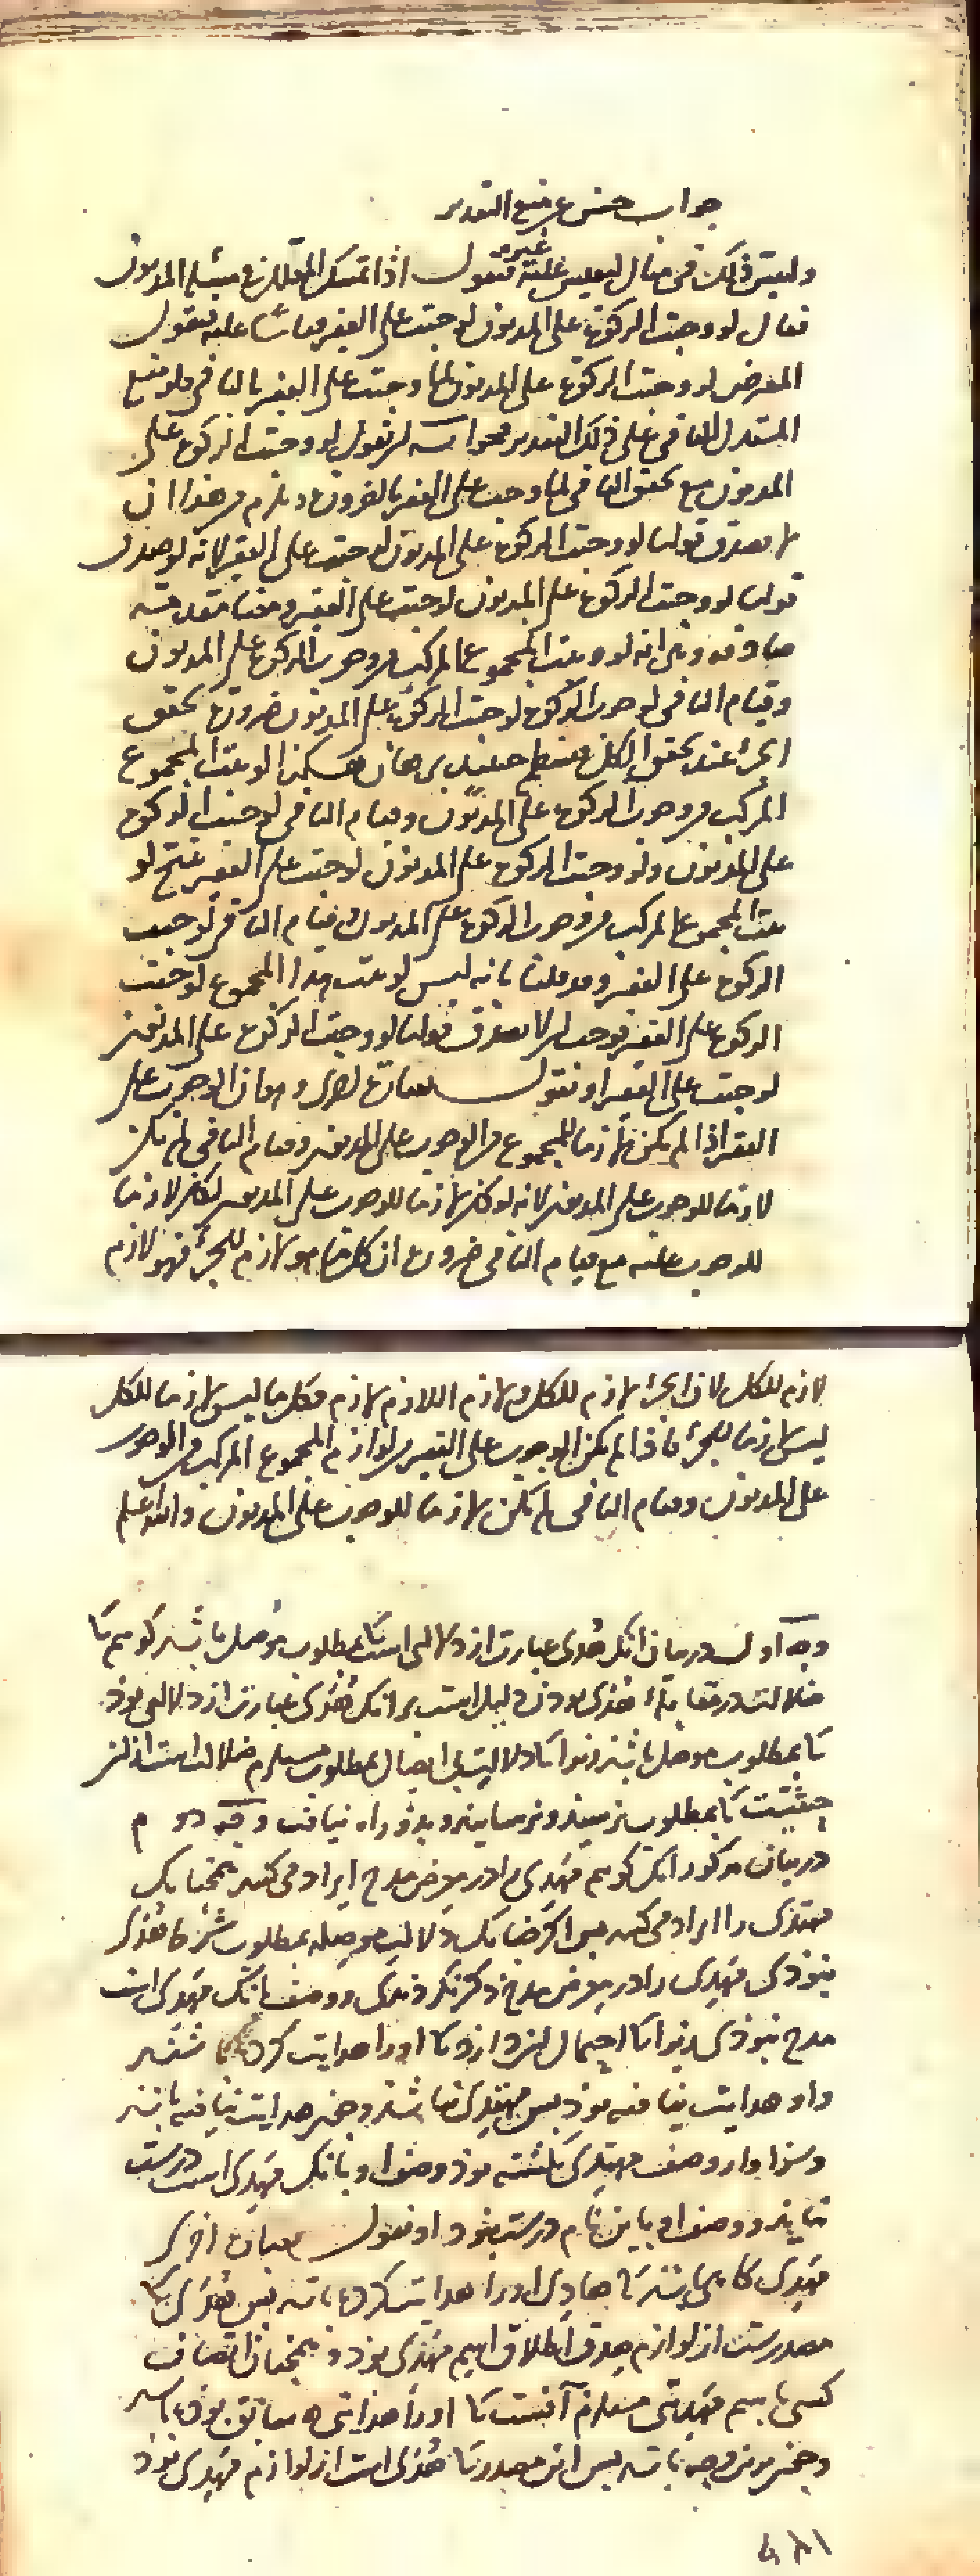 جواب حسن عن منع التقدير
وليقس ذلك في مثال ليقيس عليه غيره فنقول اذا تمسك المعلل في مسئلة المديون
فقال لو وجبت الزكوة على المديون لوجبت على الفقير قياسا عليه فيقول
المعترض لو وجبت الزكوة على المديون لما وجبت على الفقير بالنافي ولو منع
المستدل النافي على ذلك التقدير فجوابه ان نقول لو وجبت الزكوة على
المديون مع تحقق النافي لما وجبت على الفقير بالضرورة ويلزم من هذا ان
لا يصدق قولنا لو وجبت الزكوة على المديون لوجبت على الفقير لانه لو صدق
قولنا لو وجبت الزكوة على المديون لوجبت على الفقير ومعنا مقدمة
صادقة وهي انه لو وقعت المجموع المركب من وجوب الزكوة على المديون
وقيام النافي لوجوب الزكوة لوجبت الزكوة على المديون ضرورة تحقق
الجزء عند تحقق الكل فينتظم حينئذ برهان هكذا لو ثبت المجموع
المركب من وجوب الزكوة على المديون وقيام النافي لوجبت الزكوة
على المديون ولو وجبت الزكوة على المديون لوجبت على الفقير ينتج لو
ثبت المجموع المركب من وجوب الزكوة على المديون وقيام النافي لوجبت
الزكوة على الفقير وقد قلنا بانه ليس لو ثبت هذا المجموع لوجبت
الزكوة على الفقير فوجب ان لا يصدق قولنا لو وجبت الزكوة على المديون
لوجبت على الفقير او نقول بعبارة اخرى وهو ان الوجوب على
الفقير اذا لم يكن لازما للمجموع من الوجوب على المديون وقيام النافي لم يكن
لازما للوجوب على المديون لانه لو كان لازما للوجوب على المديون لكان لازما
للوجوب عليه مع قيام النافي ضرورة ان كل ما هو لازم للجزء فهو لازم
لازم للكل لان الجزء لازم للكل ولازم اللازم لازم فكل ما ليس لازما للكل
ليس لازما للجزء فاذا لم يكن الوجوب على الفقير من لوازم المجموع المركب من الوجوب
على المديون وقيام النافي لم يكن لازما للوجوب على المديون والله اعلم
وجه اول در بيان انك هدى عبارت از دلالتى است كا بمطلوب موصل باشد كوييم كا
ضلالت در مقابلهٔ هدى بودن دليل است بر انك هدى عبارت از دلالتى بود
كا بمطلوب موصل باشد زيرا كا دلالت بى ايصال بمطلوب مستلزم ضلالت است از ان
حيثيت كا بمطلوب نرسيد و نرسانيد و بدو راه نيافت وجه دوم
در بيان مذكور انك كوييم مهدى را در معرض مدح ايراد مى كنند همچنانك
مهتدى را ايراد مى كنند بس اكر چنانك دلالت موصله بمطلوب شرط هدى
نبودى مهدى را در معرض مدح ذكر نكردندى و وصف بانك مهدى است
مدح نبودى زيرا كا احتمال ان دارد كا او را هدايت كرده باشند
واو هدايت نيافته بود بس مهتدى نباشد و چون هدايت نيافته باشد
وسزاوار وصف مهتدى نكشته بود وصف او بانك مهدى است درست
نيايد و وصف او باين نام درست نبود او نقول بعبارة اخرى
مهدى كاهى باشد كا هادى او را هدايت كرده باشد بس هدى كا
مصدرست از لوازم صدق اطلاق اسم مهدى بود و همچنان اتصاف
كسى باسم مهديتى مستلزم آنست كا او را هدايتى سابق بوده باشد
و چون برين وجه باشد بس اين مصدر كا هدى است از لوازم مهدى بود